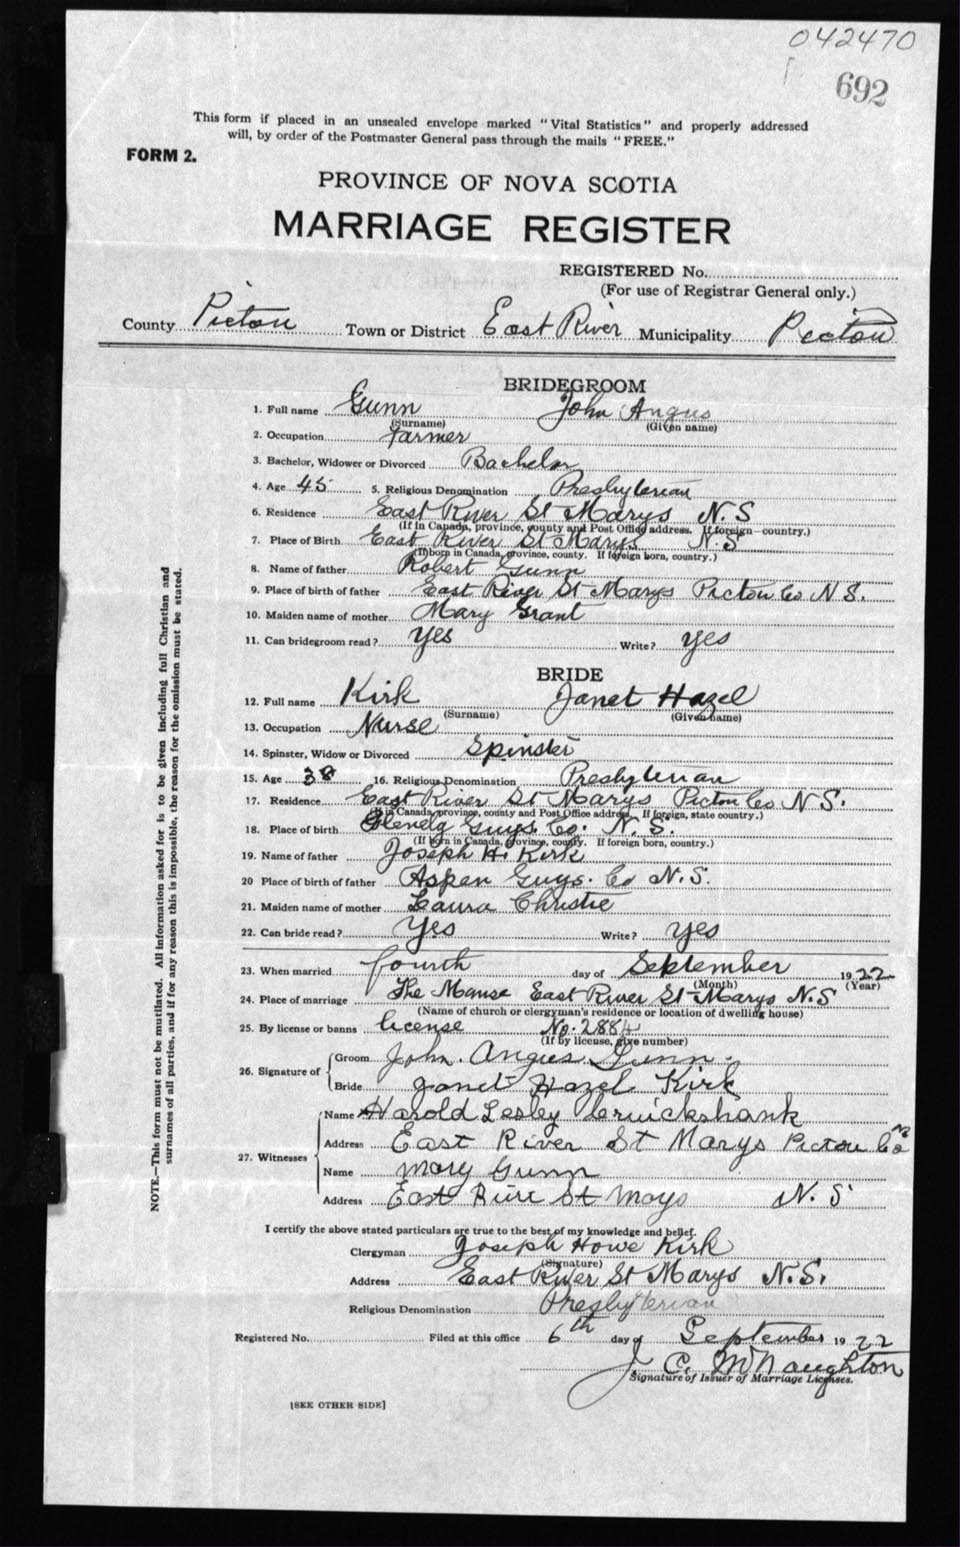 042470
692
This form if placed in an unsealed envelope marked "Vital Statistics" and properly addressed
will, by order of the Postmaster General pass through the mails "FREE."
FORM 2.
PROVINCE OF NOVA SCOTIA
MARRIAGE REGISTER
REGISTERED No.
(For use of Registrar General only.)
County Pictou Town or District East River Municipality Pictou
BRIDEGROOM
1. Full name Gunn John Angus
(Surname) (Given name)
2. Occupation farmer
3. Bachelor, Widower or Divorced Bachelor
4. Age 45 5. Religious Denomination Presbyterian
6. Residence East River St Marys N.S
(If in Canada, province, county and Post Office address. If foreign country.)
7. Place of Birth East River St Marys N.S
(If born in Canada, province, county. If foreign born, country.)
8. Name of father Robert Gunn
9. Place of birth of father East River St Marys Pictou Co N S.
10. Maiden name of mother Mary Grant
11. Can bridegroom read? Yes Write? yes
BRIDE
12. Full name Kirk Janet Hazel
(Surname) (Given name)
13. Occupation Nurse
14. Spinster, Widow or Divorced Spinster
15. Age 38 16. Religious Denomination Presbyterian
17. Residence East River St Marys Pictou Co N S.
(If in Canada, province, county and Post Office address. If foreign, state country.)
18. Place of birth Glenelg Guys. Co. N. S.
(If born in Canada, province, county. If foreign born, country.)
19. Name of father Joseph H. Kirk
20 Place of birth of father Aspen Guys. Co N.S.
21. Maiden name of mother Laura Christie
22. Can bride read? Yes Write? yes
23. When married fourth day of September 1922
(Month) (Year)
24. Place of marriage The Manse East River St Marys N.S
(Name of church or clergyman's residence or location of dwelling house)
25. By license or banns license No. 2884
(If by license, give number)
26. Signature of
Groom John Angus Gunn
Bride Janet Hazel Kirk
27. Witnesses
Name Harold Lesley Cruickshank
Address East River St Marys Pictou Co NS
Name Mary Gunn
Address East River St Marys N. S
I certify the above stated particulars are true to the best of my knowledge and belief.
Clergyman Joseph Howe Kirk
(Signature)
Address East River St Marys N.S.
Religious Denomination Presbyterian
Registered No. Filed at this office 6th day of September 1922
J. C. McNaughton
Signature of Issuer of Marriage Licenses.
[SEE OTHER SIDE]
NOTE.—This form must not be mutilated. All information asked for is to be given including full Christian and
surnames of all parties, and if for any reason this is impossible, the reason for the omission must be stated.